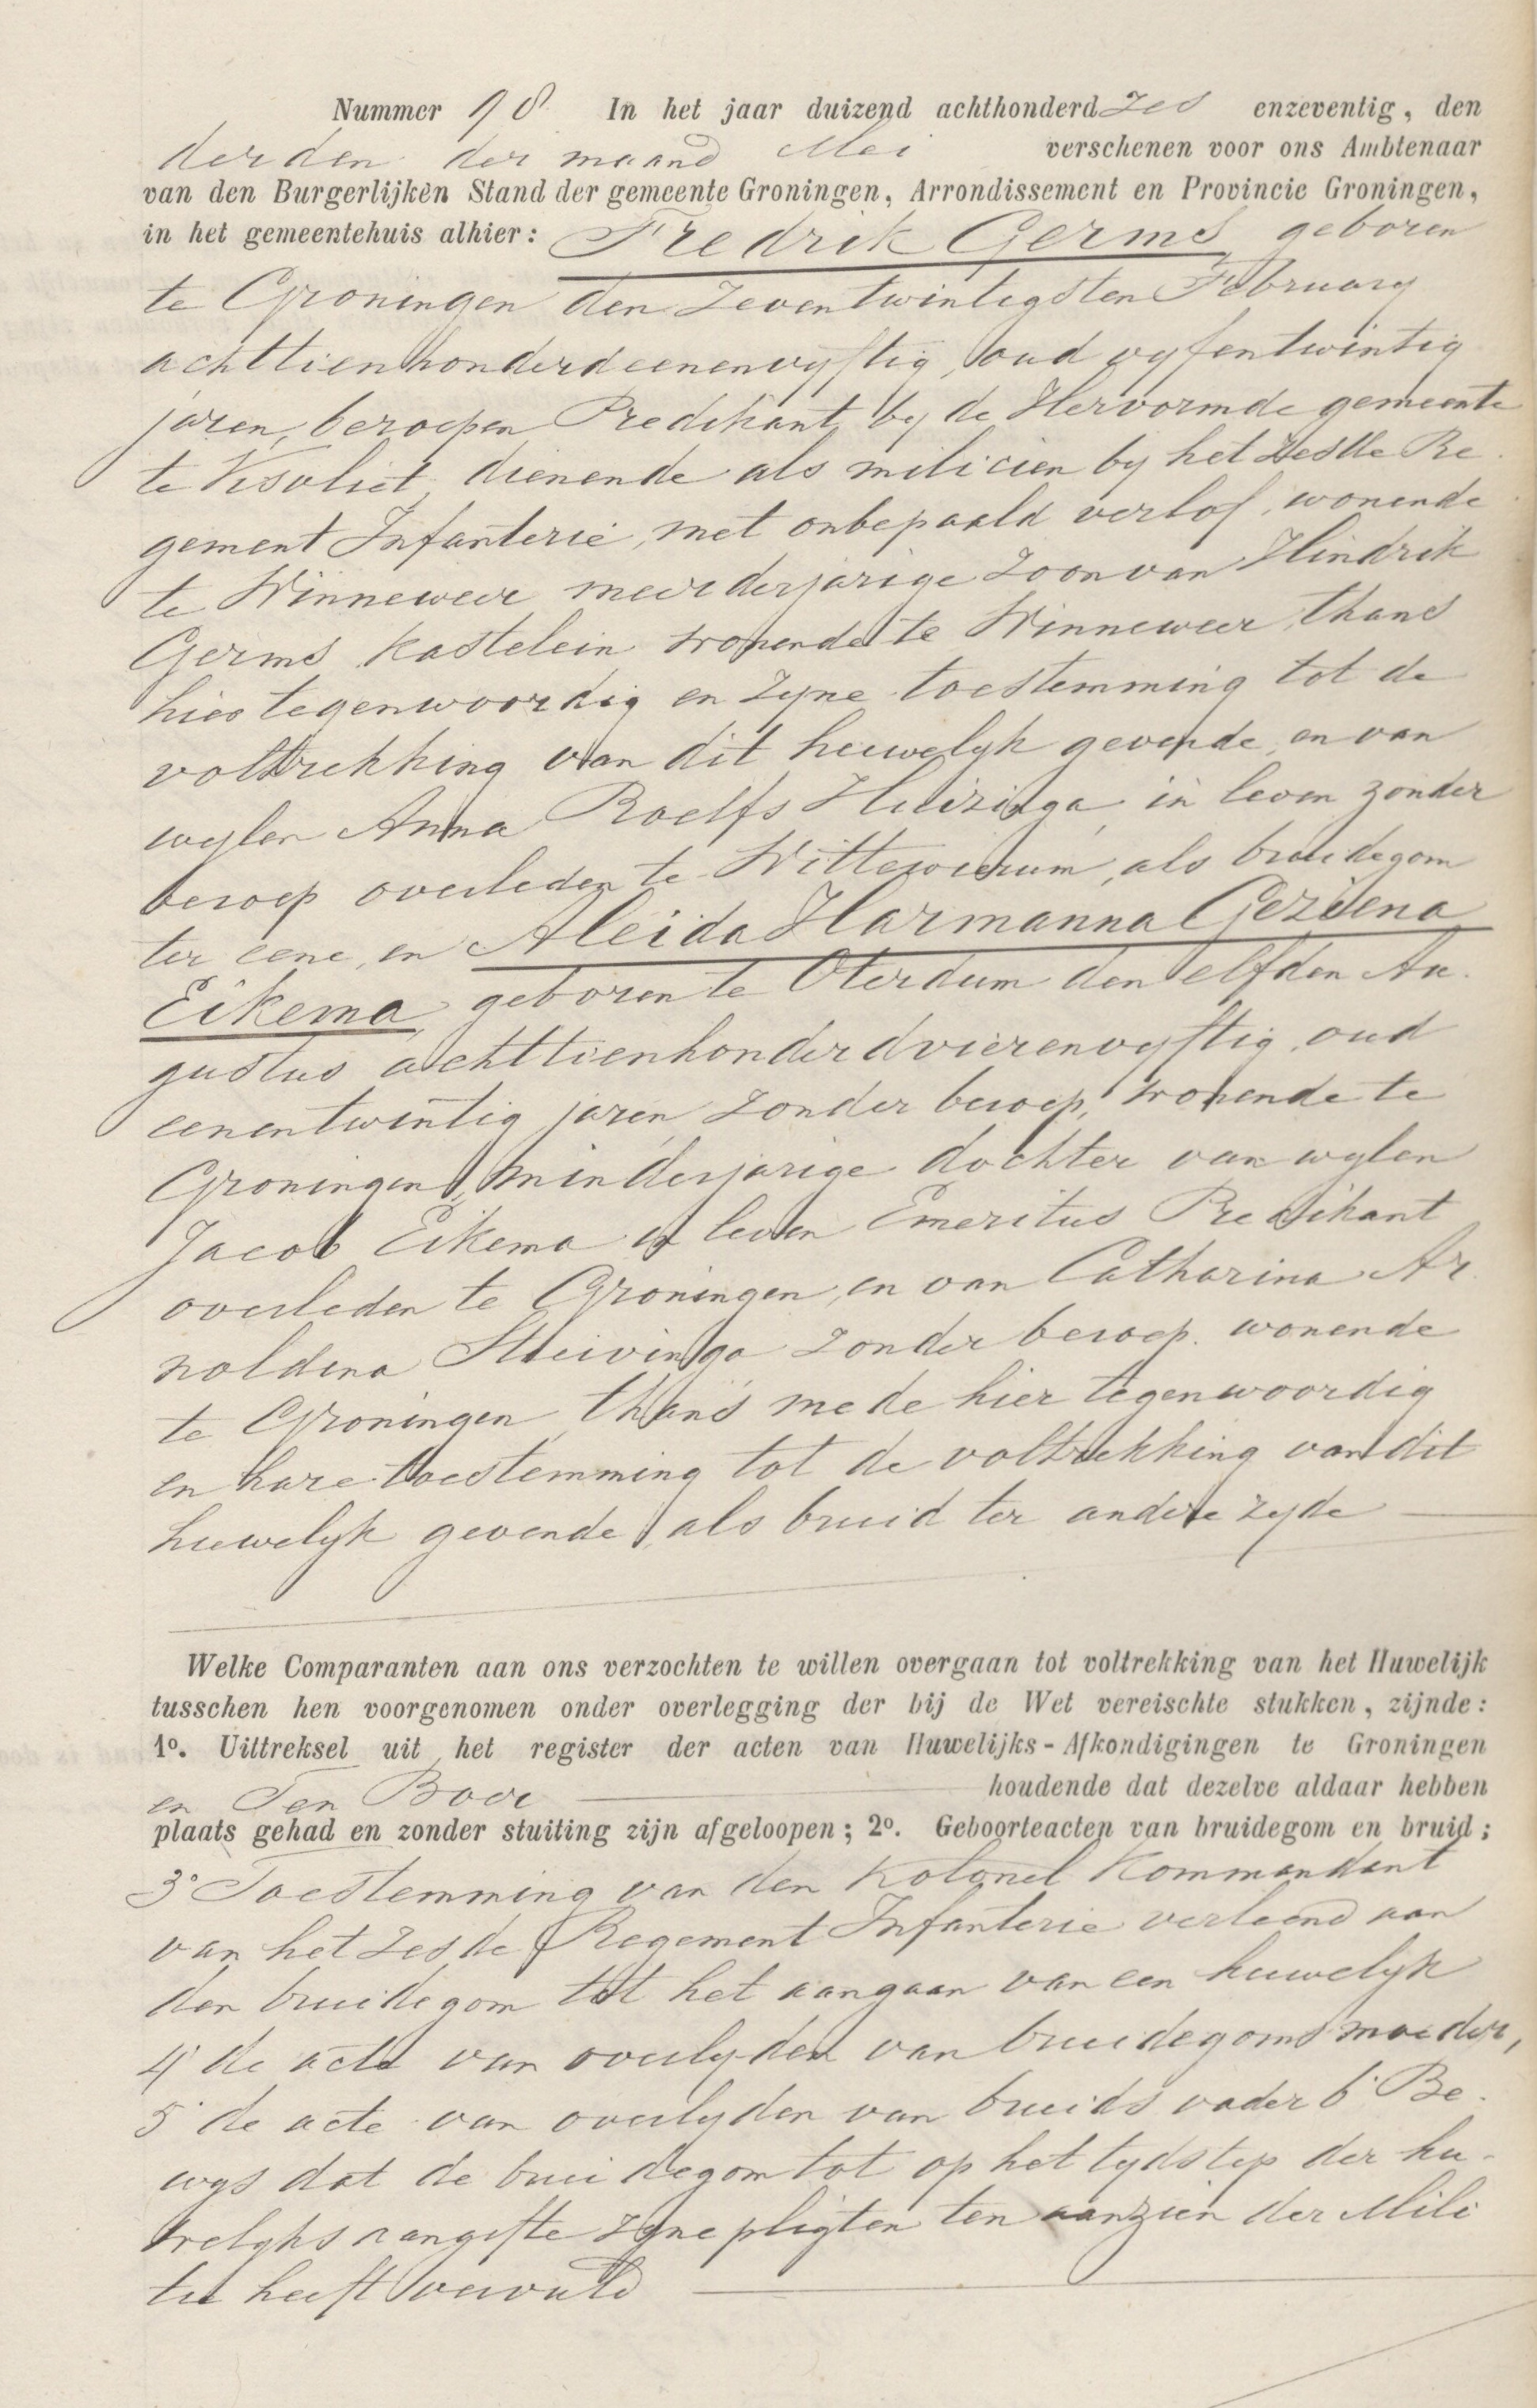 Nummer 98 In het jaar duizend achthonderd zes enzeventig, den
derden der maand Mei verschenen voor ons Ambtenaar
van den Burgerlijken Stand der gemeente Groningen, Arrondissement en Provincie Groningen,
in het gemeentehuis alhier: Fredrik Germs, geboren
te Groningen den zeventwintigsten February
achttienhonderdeenenvyftig, oud vyfentwintig
jaren, beroepen Predikant by de Hervormde gemeente
te dienende als milicien by het zesde Re-
gement Infanterie, met onbepaald verlof, wonende
te Winneweer meerderjarige zoon van Hindrik
Germs kastelein wonende te Winneweer, thans
hier tegenwoordig en zyne toestemming tot de
voltrekking van dit huwelyk gevende, en van
wylen Anna Roelfs Huizinga, in leven zonder
beroep overleden te Wittewierum, als bruidegom
ter eene, en Aleida Harmanna Geziena
Eikema, geboren te Oterdum den elfden Au-
gustus achttienhonderdvierenvyftig, oud
eenentwintig jaren zonder beroep, wonende te
Groningen, minderjarige dochter van wylen
Jacob Eikema in leven Emeritus Predikant
overleden te Groningen, en van Catharina Ar-
noldina Stuivinga zonder beroep, wonende
te Groningen, thans mede hier tegenwoordig
en hare toestemming tot de voltrekking van dit
huwelyk gevende, als bruid ter andere zyde
Welke Comparanten aan ons verzochten te willen overgaan tot voltrekking van het Huwelijk
tusschen hen voorgenomen onder overlegging der bij de Wet vereischte stukken, zijnde:
1o. Uittreksel uit het register der acten van Huwelijks-Afkondigingen te Groningen
en Ten Boer houdende dat dezelve aldaar hebben
plaats gehad en zonder stuiting zijn afgeloopen; 2o. Geboorteacten van bruidegom en bruid;
3o Toestemming van den Kolonel Kommandant
van het zesde Regement Infanterie verleend aan
den bruidegom tot het aangaan van een huwelyk
4o de acte van overlyden van bruidegoms moeder,
5o de acte van overlyden van bruids vader 6o Be-
wys dat de bruidegom tot op het tydstip der hu-
welyks aangifte zyne pligten ten aanzien der Mili
tie heeft vervuld